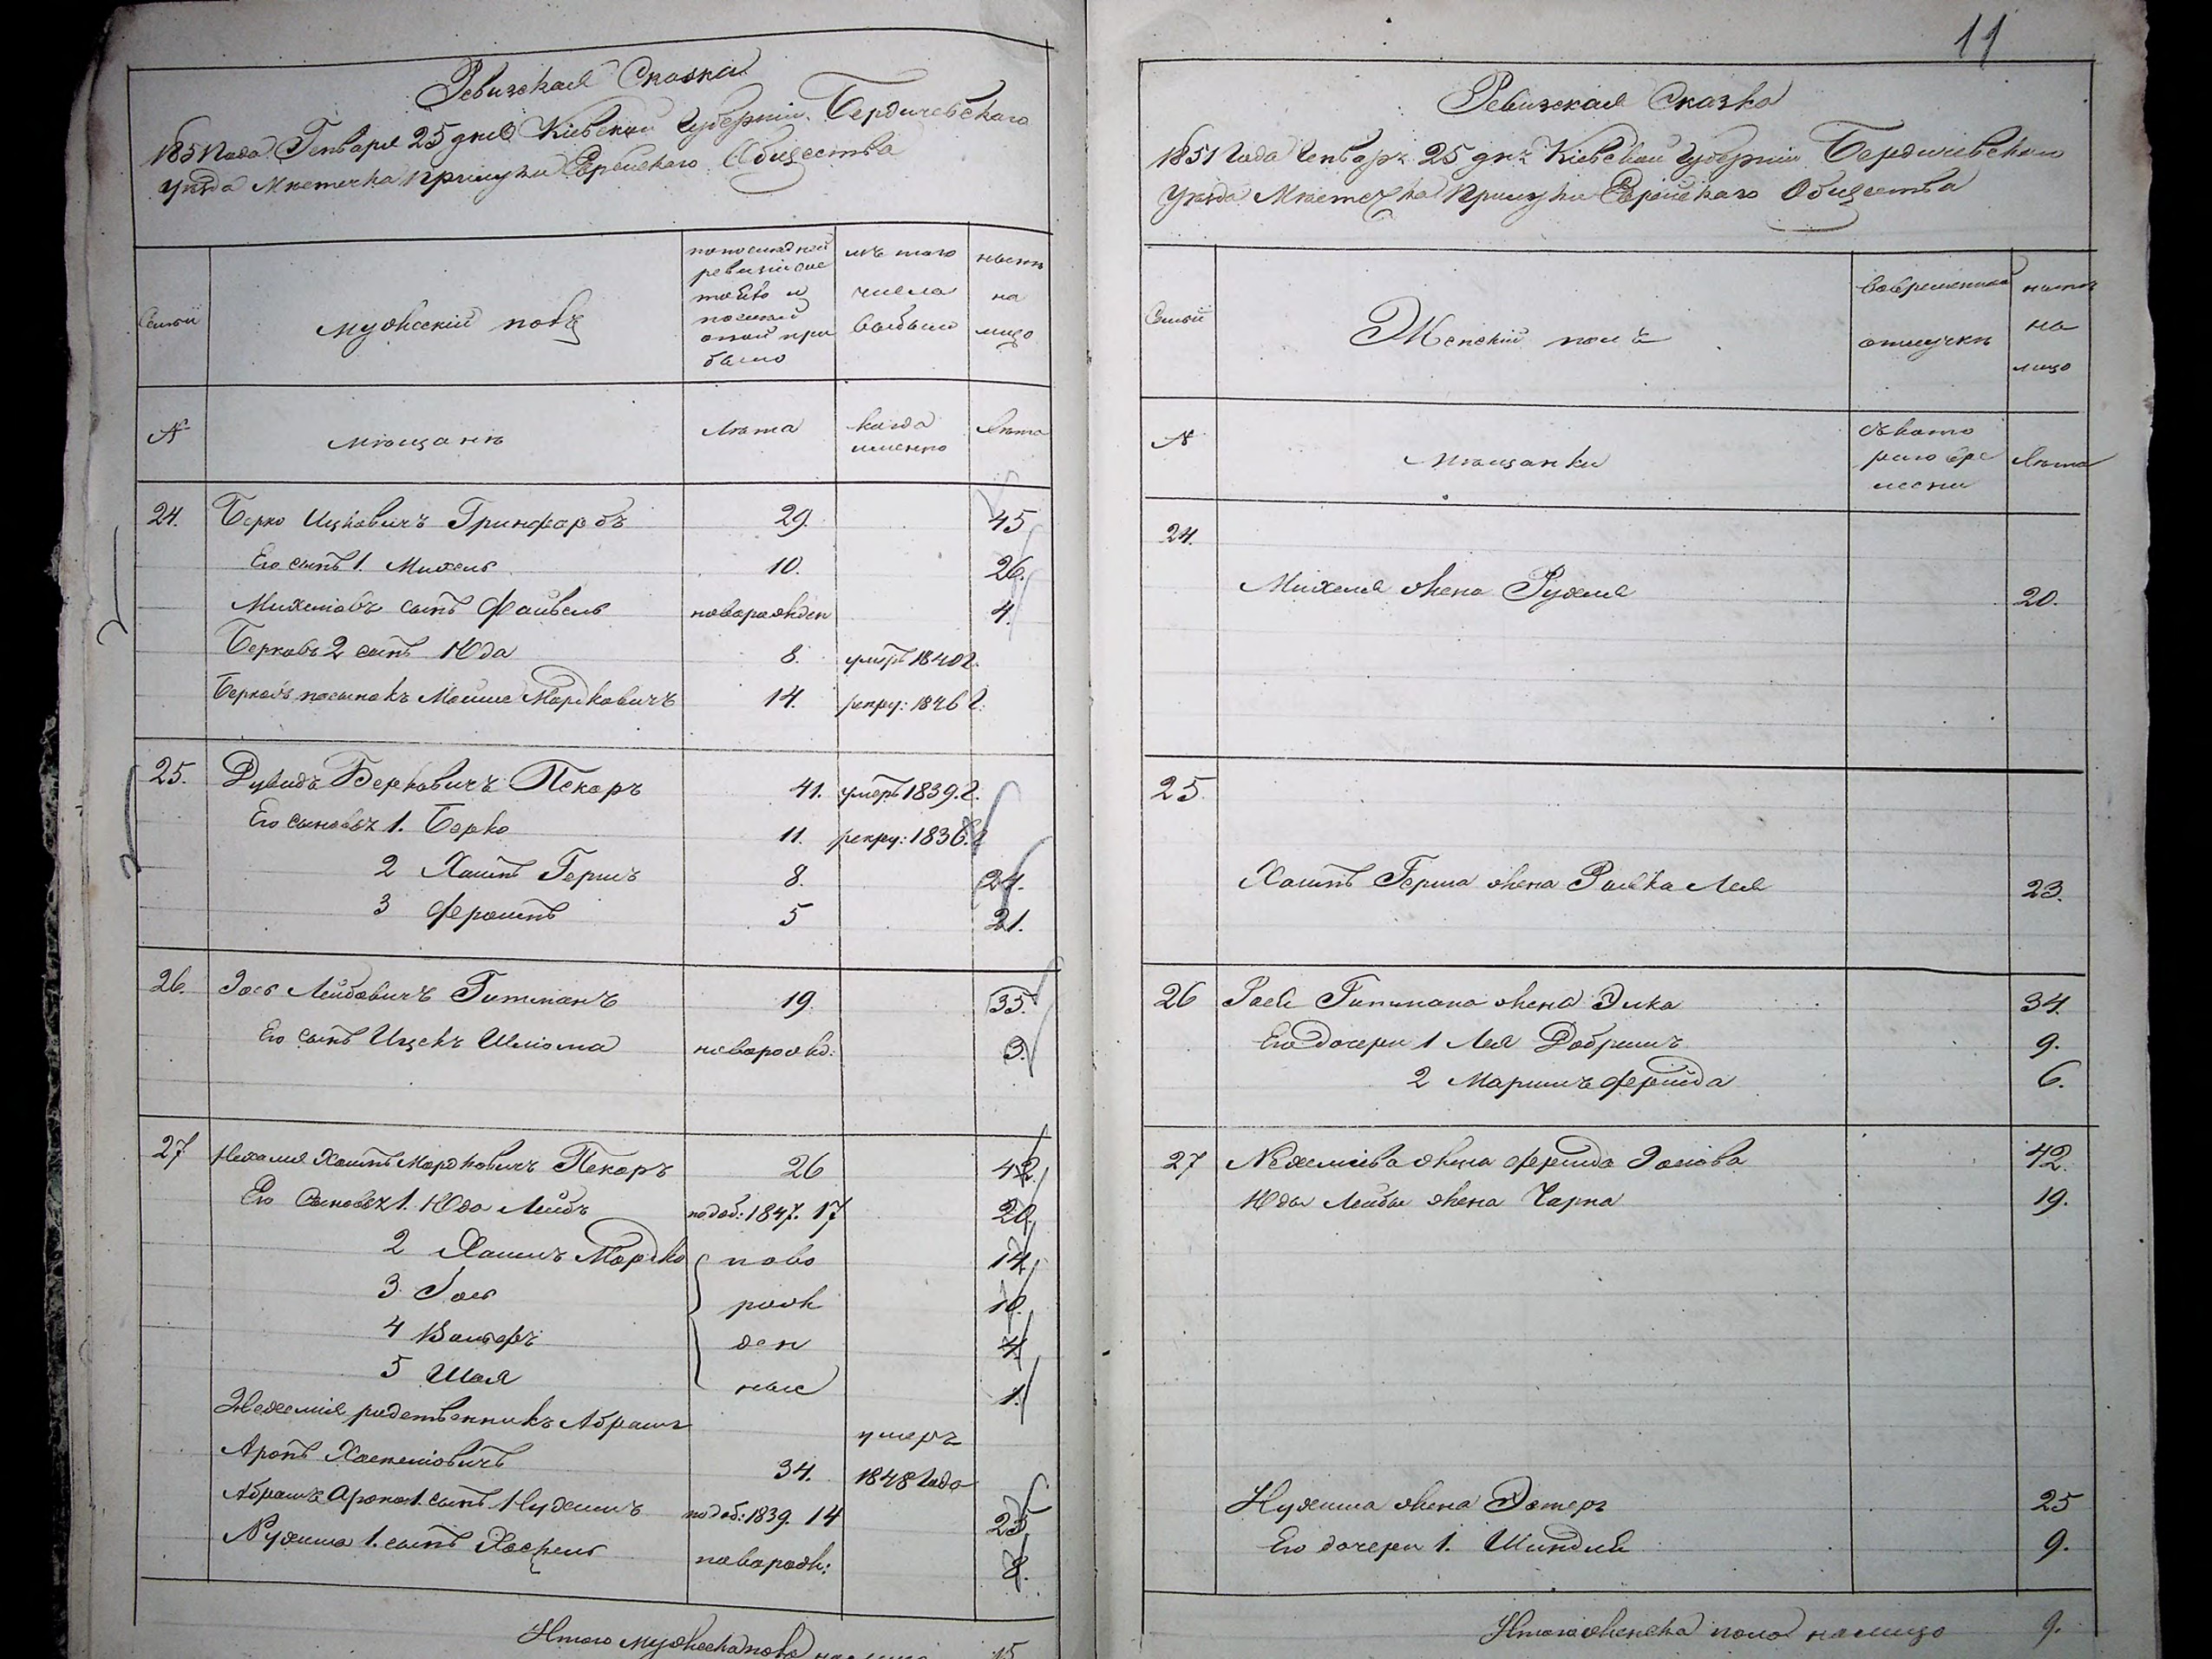 Ревизская Сказка
1851 Года Генваря 25 дня Кіевской Губерніи Бердичевскаго
уѣзда Мѣстечка Прилуки Еврейскаго Общества
Семьи
Мужескій полъ
по последней
ревизіи сос
тояло и
после
оной при
было
изъ того
числа
выбыло
нынѣ
на
лицо
№
мѣщанъ
Лѣта
когда
именно
Лѣта
24. Берко Ицковичъ Гринфарбъ 29. 45
Его сынъ 1. Михель 10. 26.
Михелювъ сынъ Файвель новорожден 4.
Берковъ 2 сынъ Юда 8. умеръ 1840 г.
Берковъ пасынокъ Мошко Мордковичъ 14. рекру: 1846 г.
25. Дувидъ Берковичъ Пекаръ 41. умеръ 1839. г.
Его сыновья 1. Берко 11. рекру: 1836. г
2 Хаимъ Гершъ 8. 24.
3 Фроимъ 5 21.
26. Іось Лейбовичъ Гитманъ 19. 35.
Его сынъ Ицекъ Шліома новорожд: 3.
27 Нехемія Хаимъ Мордковичъ Пекаръ 26 42.
Его Сыновья 1. Юда Лейбъ по доб: 1847. 17 20.
2 Хаимъ Мордко ново 14.
3 Іось рож 10.
4 Вольфъ ден 4.
5 Шая ные 1.
Нехемія родственникъ Абрамъ умеръ
Аронъ Хаскеліовичъ 34. 1848 Года
Абрама Арона 1. сынъ Нухимъ по доб: 1839. 14 25
Нухима 1. сынъ Хаскель новорож: 8.
Итого мужеска пола на лицо 15
11
Ревизская Сказка
1851 Года Генваря 25 дня Кіевской Губерніи Бердичевскаго
Уѣзда Мѣстечка Прилуки Еврейскаго Общества
Семьи
Женскій полъ
во временной
отлучкѣ
нынѣ
на
лицо
№
мѣщанки
съ кото
раго вре
мени
Лѣта
24.
Михеля жена Рухля 20.
25
Хаимъ Герша жена Ривка Лея 23.
26 Іося Гитмана жена Элка 34.
Его дочери 1 Лея Добришъ 9.
2 Маримъ Фрейда 6.
27 Нехеміева жена Фрейда Іосіова 42.
Юды Лейбы жена Чарна 19.
Нухима жена Эстеръ 25
Его дочери 1. Шиндля 9.
Итого женска пола на лицо 9.